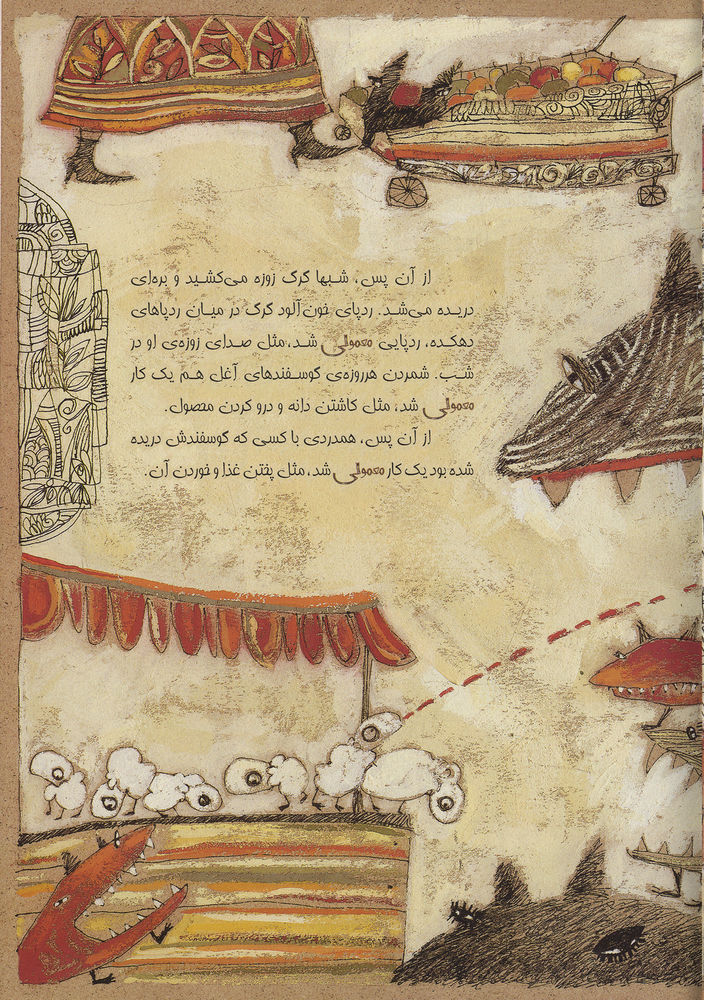 از آن پس، شبها گرگ زوزه می‌کشید و بره‌ای
دریده می‌شد. ردپای خون‌آلود گرگ در میان ردپاهای
دهکده، ردپایی معمولی شد، مثل صدای زوزه‌ی او در
شب. شمردن هرروزه‌ی گوسفندهای آغل هم یک کار
معمولی شد، مثل کاشتن دانه و درو کردن محصول.
از آن پس، همدردی با کسی که گوسفندش دریده
شده بود یک کار معمولی شد، مثل پختن غذا و خوردن آن.